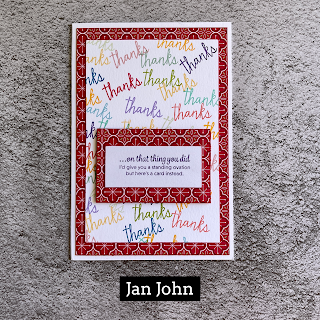 thanks
thanks thanks
thanks thanks
thanks thanks thanks
thanks thanks
thanks thanks
...on that thing you did
I'd give you a standing ovation
but here's a card instead.
thanks thanks
thanks thanks
thanks
Jan John